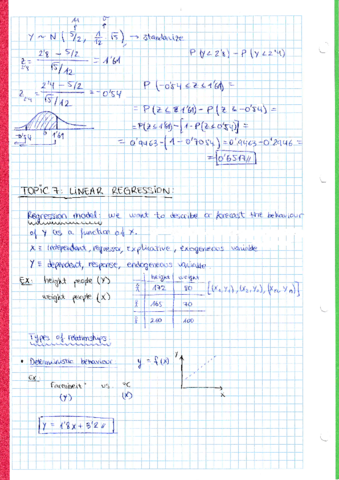 μ σ
Y ~ N ( 5/2, 1/12 √5 ) → standarize
P (Y < 2'8) - P (Y < 2'4)
Z2'8 = 2'8 - 5/2 / √5/12 = 1'61
Z2'4 = 2'4 - 5/2 / √5/12 = -0'54
P (-0'54 ≤ Z ≤ 1'61) =
= P(Z ≤ 1'61) - P(Z ≤ -0'54) =
= P(Z ≤ 1'61) - [1 - P(Z ≤ 0'54)] =
= 0'9463 - (1 - 0'7054) = 0'9463 - 0'2946 =
-0'54 1'61
TOPIC 7: LINEAR REGRESSION:
Regression model: we want to describe or forecast the behaviour
of Y as a function of X.
X = independent, regressor, explicative, exogeneous variable
Y = dependent, response, endogeneous variable
EX: height people (Y)
weight people (X)
height weight
1 172 80
2 165 70
3 210 100
[(x1, y1), (x2, y2), (xn, yn)]
Types of relationships:
• Deterministic behaviour y = f(x)
Y
X
EX:
Fahrenheit vs ºC
(Y) (X)